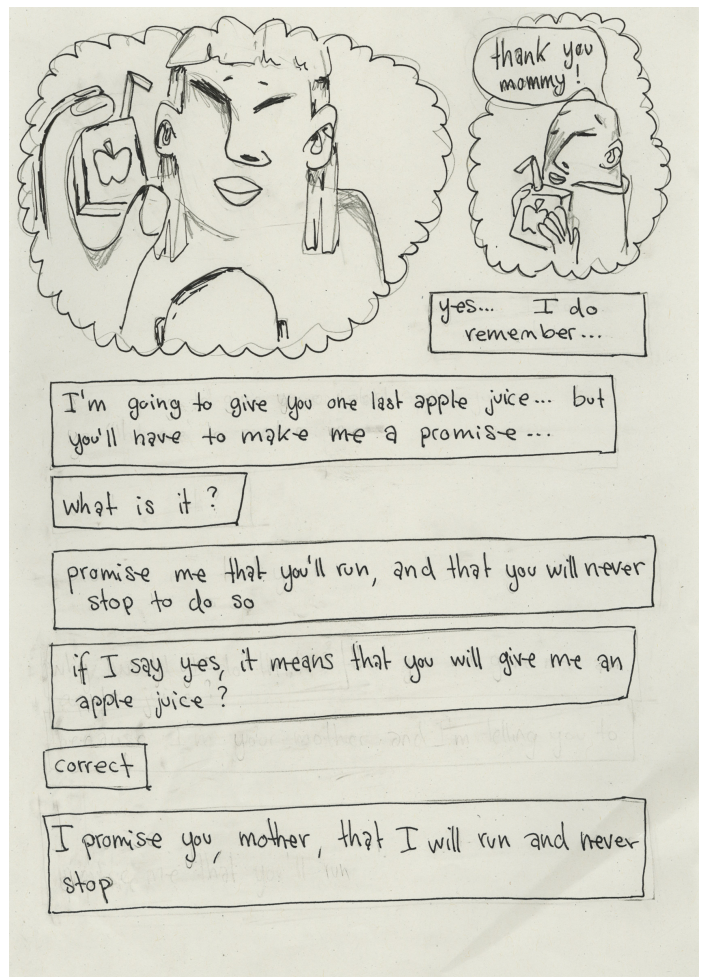 thank you
mommy!
yes... I do
remember...
I'm going to give you one last apple juice... but
you'll have to make me a promise...
what is it?
promise me that you'll run, and that you will never
stop to do so
if I say yes, it means that you will give me an
apple juice?
correct
I promise you, mother, that I will run and never
stop